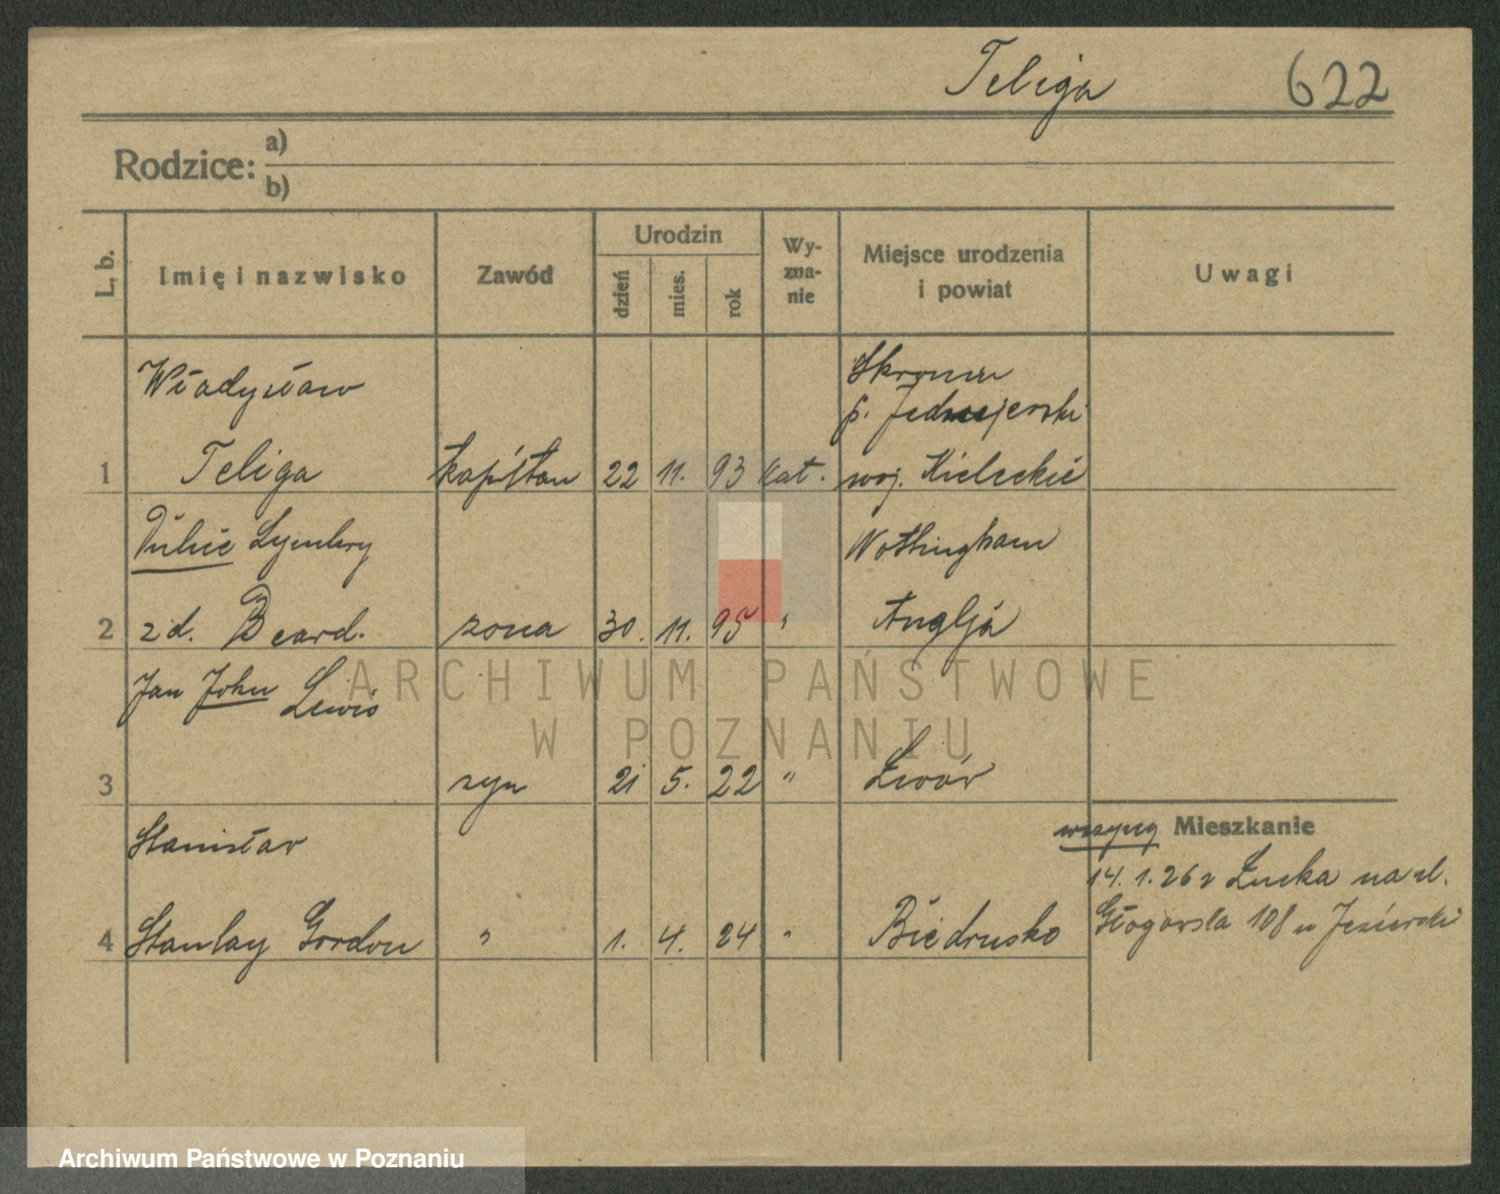 Teliga 622
Rodzice: a)
b)
L. b. Imię i nazwisko Zawód Urodzin dzień mies. rok Wy-zna-nie Miejsce urodzenia i powiat Uwagi
Władysław
Teliga
1 kapitan 22 11. 93 kat. p. Jędrzejerski
woj. Kieleckie
Lymbery
Nothingham
2 zd. Beard. żona 30. 11. 95 " Anglja
Jan John Lewis
3 syn 21 5. 22 " Lwów
Stanisław
4 Stanlay Gordon " 1. 4. 24 " Biedrusko
Mieszkanie
14. 1. 26 z Łucka na ul.
Głogowska 108 u
ARCHIWUM PAŃSTWOWE
W POZNANIU
Archiwum Państwowe w Poznaniu